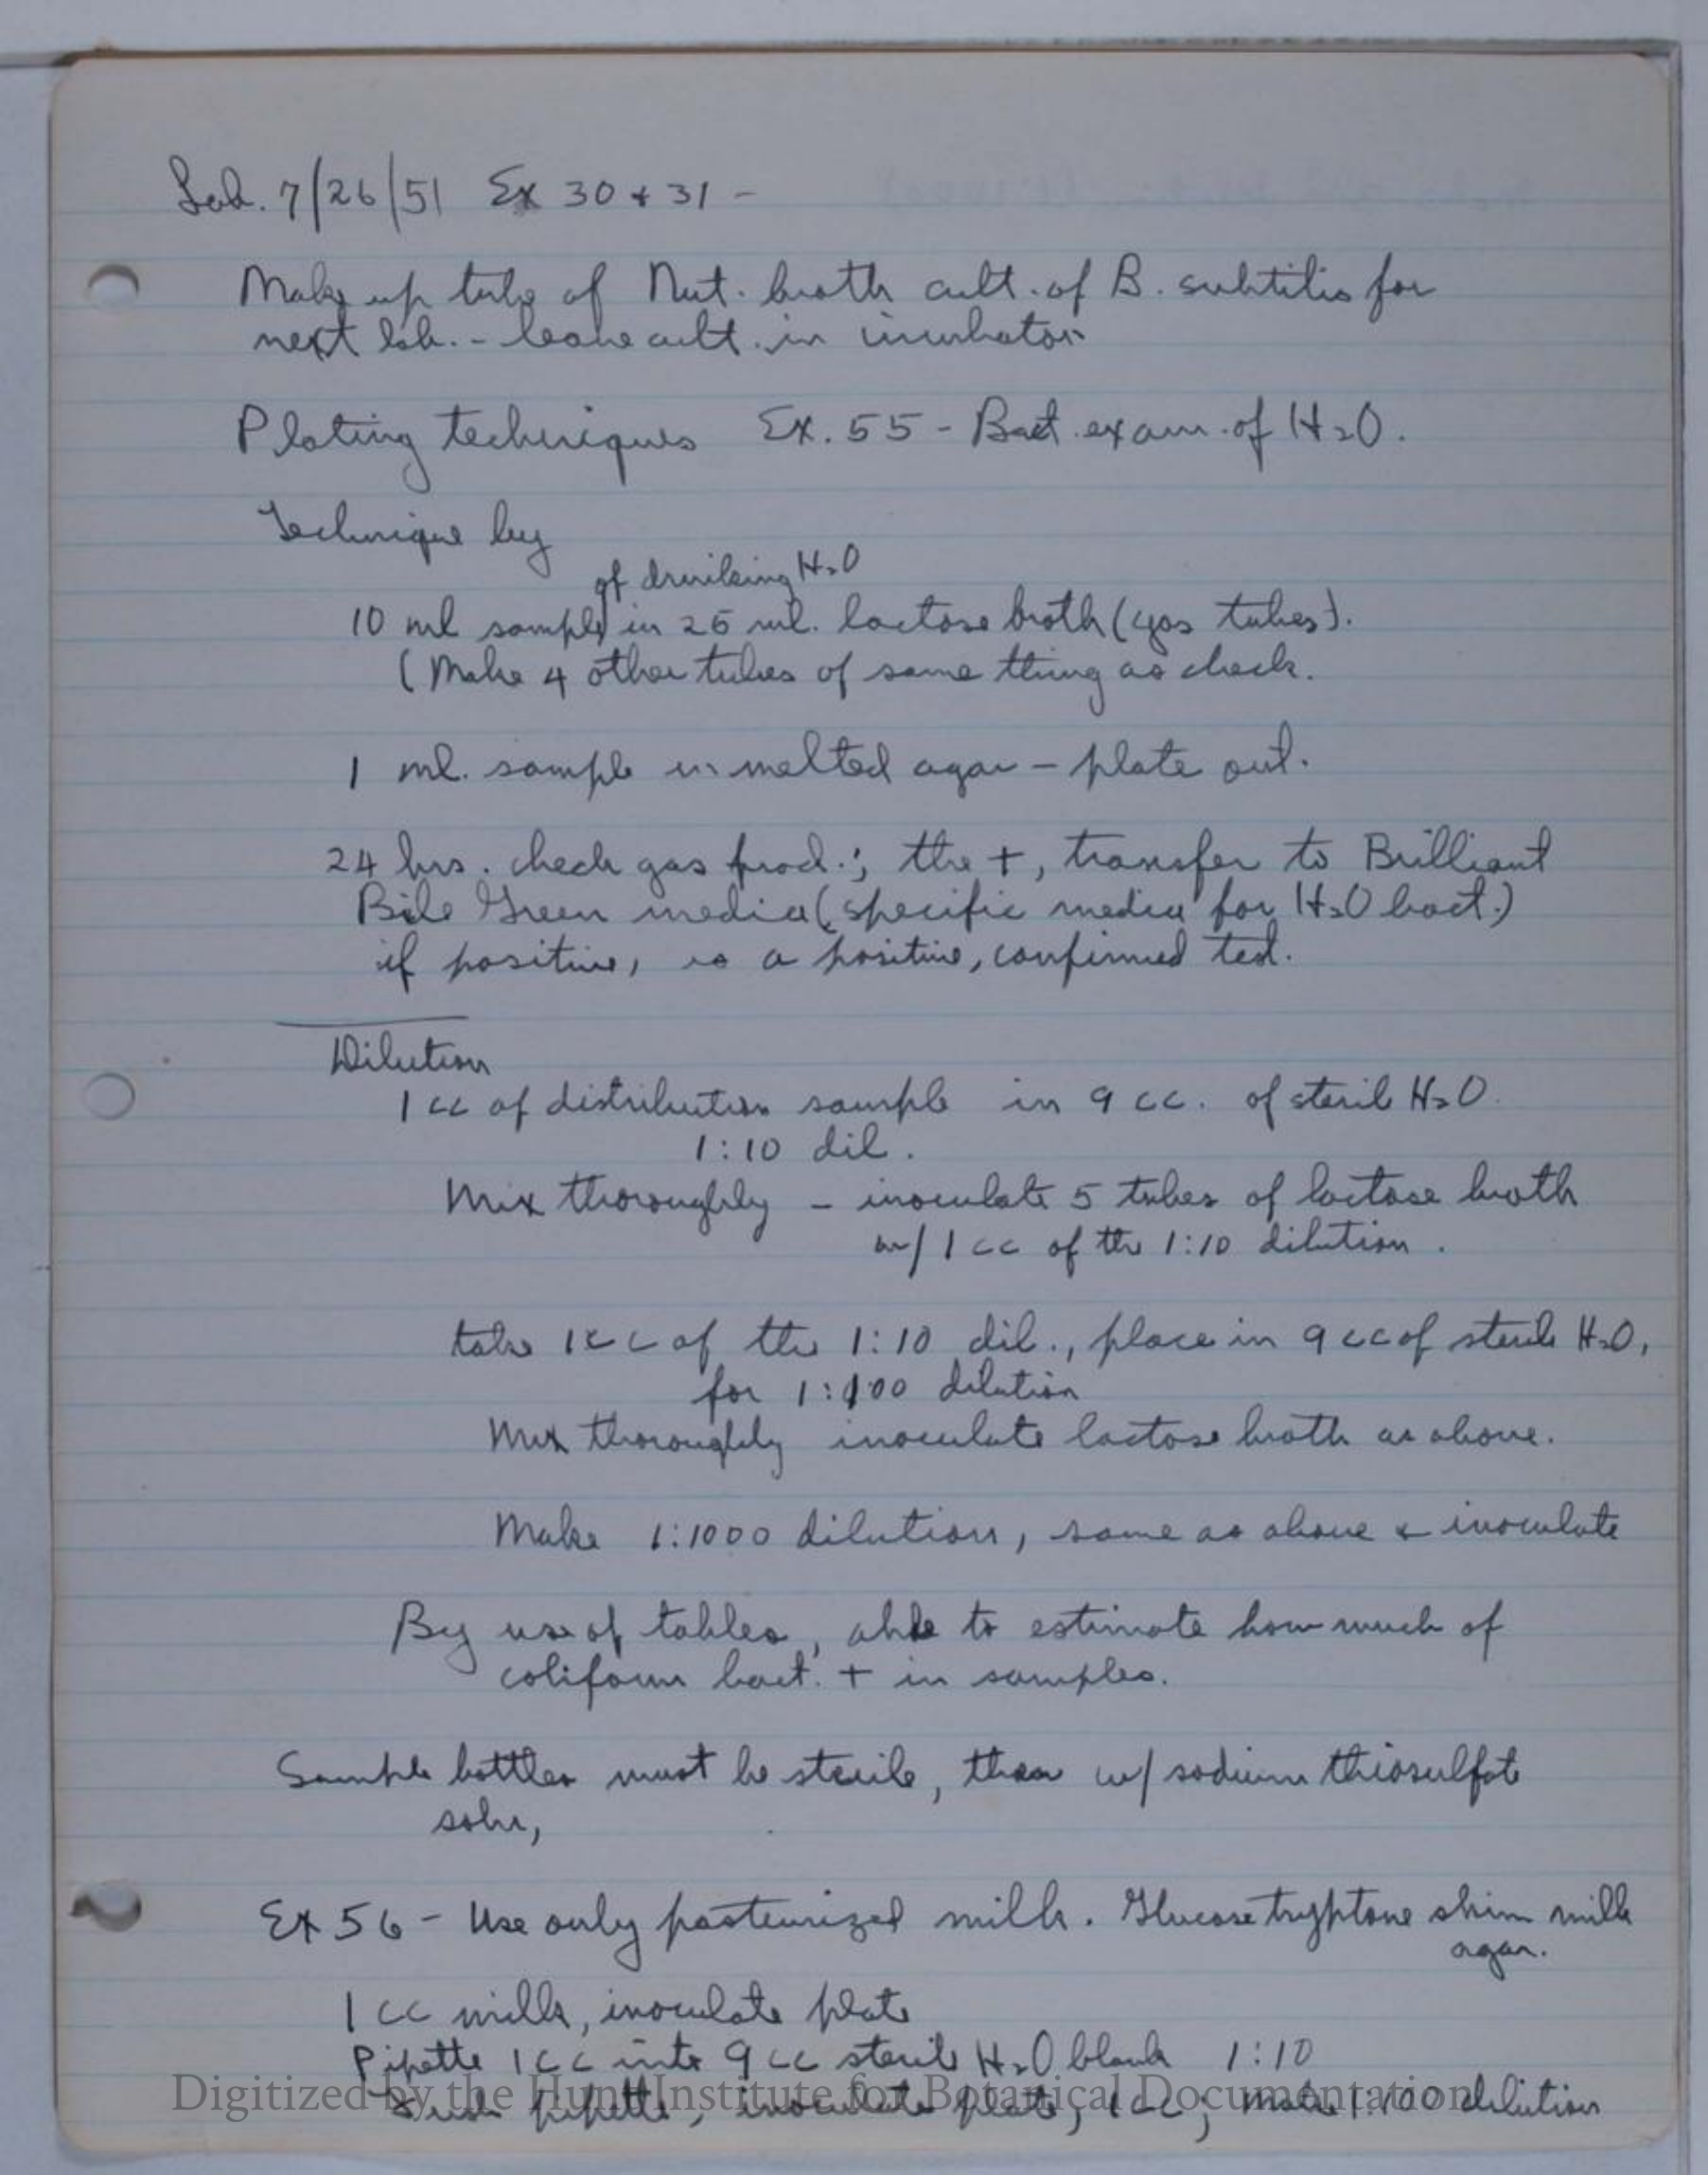 Lab. 7/26/51 Ex 30 + 31 -
Make up tube of Nut. broth cult. of B. subtilis for
next lab. - leave cult. in incubator
Plating techniques Ex. 55 - Bact. exam. of H2O.
Technique by
of drinking H2O
10 ml sample in 25 ml. lactose broth (gas tubes).
(Make 4 other tubes of same thing as check.
1 ml. sample in melted agar - plate out.
24 hrs. check gas prod.; the +, transfer to Brilliant
Bile Green media (specific media for H2O bact.)
if positive, is a positive, confirmed test.
Dilution
1 cc of distribution sample in 9 cc. of steril H2O.
1:10 dil.
Mix thoroughly - inoculate 5 tubes of lactose broth
w/ 1 cc of the 1:10 dilution.
take 1 cc of the 1:10 dil., place in 9 cc of sterile H2O,
for 1:100 dilution
Mix thoroughly inoculate lactose broth as above.
Make 1:1000 dilution, same as above & inoculate
By use of tables, able to estimate how much of
coliform bact. + in samples.
Sample bottles must be sterile, then w/ sodium thiosulfate
soln,
Ex 56 - Use only pasteurized milk. Glucose tryptone skim milk
agar.
1 cc milk, inoculate plate
Pipette 1 cc into 9 cc steril H2O blank 1:10
pipette, inoculate plate, 1 cc, make 1:100 dilution
Digitized by the Hunt Institute for Botanical Documentation